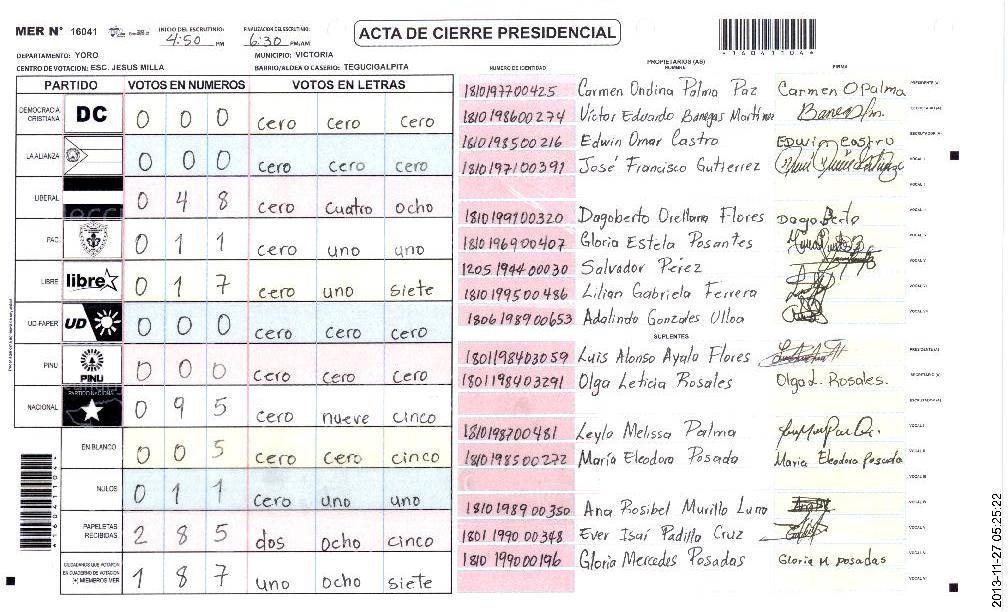 MER N° 16041 INICIO DEL ESCRUTINIO: 4:50 PM FINALIZACION DEL ESCRUTINIO: 6:30 PM/AM
ACTA DE CIERRE PRESIDENCIAL
DEPARTAMENTO: YORO MUNICIPIO: VICTORIA
CENTRO DE VOTACION: ESC. JESUS MILLA BARRIO/ALDEA O CASERO: TEGUCIGALPITA
PARTIDO VOTOS EN NUMEROS VOTOS EN LETRAS
DEMOCRACIA CRISTIANA DC 0 0 0 cero cero cero
LA ALIANZA 0 0 0 cero cero cero
LIBERAL 0 4 8 cero cuatro ocho
PAC 0 1 1 cero uno uno
LIBRE libre 0 1 7 cero uno siete
UD-FAPER UD 0 0 0 cero cero cero
PINU PINU 0 0 0 cero cero cero
NACIONAL PARTIDO NACIONAL 0 9 5 cero nueve cinco
EN BLANCO 0 0 5 cero cero cinco
NULOS 0 1 1 cero uno uno
PAPELETAS RECIBIDAS 2 8 5 dos ocho cinco
CIUDADANOS QUE VOTARON EN CUADERNO DE VOTACION (+) MIEMBROS MER 1 8 7 uno ocho siete
PROPIETARIOS (AS)
NUMERO DE IDENTIDAD NOMBRE FIRMA
1810197700425 Carmen Ondina Palma Paz Carmen O Palma PRESIDENTE (A)
1810198600274 Víctor Eduardo Banegas Martinez SECRETARIO (A)
1810198500216 Edwin Omar Castro Edwin castro ESCRUTADOR (A)
1810197100391 José Francisco Gutierrez VOCAL I
VOCAL II
1810199100320 Dagoberto Orellana Flores Dagoberto
1810196900407 Gloria Estela Posantes
1205194400030 Salvador Pérez VOCAL V
1810199500486 Lilian Gabriela Ferrera VOCAL VI
1806198900653 Adalindo Gonzales Ulloa VOCAL VII
SUPLENTES
1801198403059 Luis Alonso Ayala Flores PRESIDENTE (A)
1801198403291 Olga Leticia Rosales Olga L. Rosales. SECRETARIO (A)
ESCRUTADOR (A)
1810198700481 Leyla Melissa Palma VOCAL I
1810198500272 María Eleodora Posada Maria Eleodora posada VOCAL II
VOCAL III
1810198900350 Ana Rosibel Murillo Luna VOCAL IV
1801199000348 Ever Isaí Padilla Cruz VOCAL V
1810199000196 Gloria Mercedes Posadas Gloria M posadas
VOCAL VII
*160411044*
2013-11-27 05:25:22